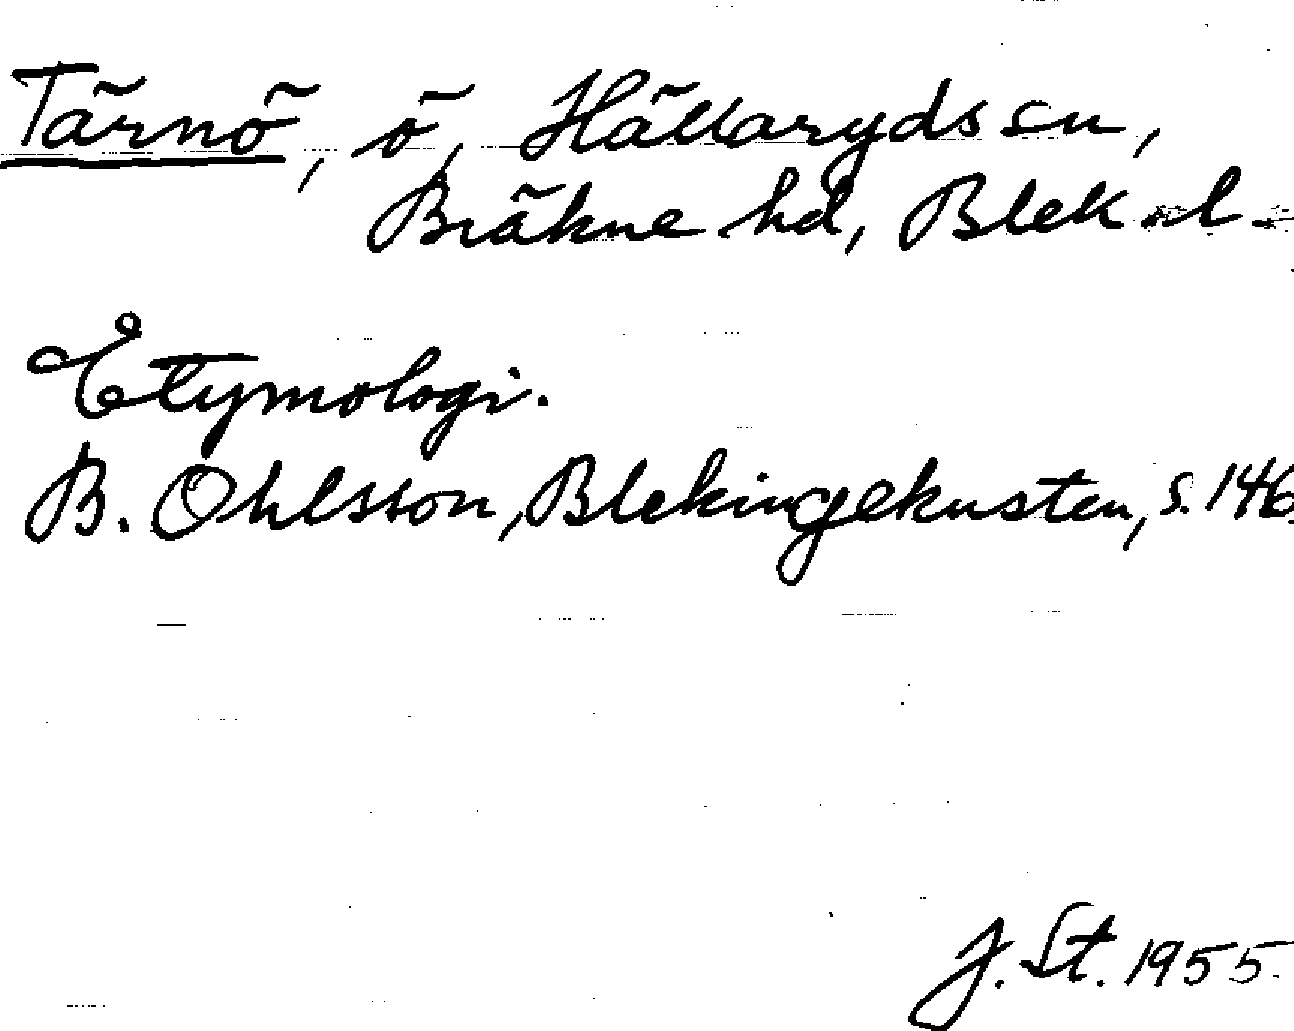 Tärnö, ö, Hällaryds sn,
Bräkne hd, Blek. l.
Etymologi.
B. Ohlsson, Blekingekusten, s. 146.
J. St. 1955.